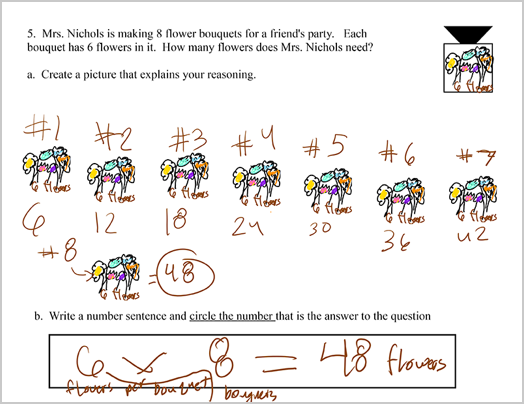 5. Mrs. Nichols is making 8 flower bouquets for a friend's party. Each
bouquet has 6 flowers in it. How many flowers does Mrs. Nichols need?
6 flowers
a. Create a picture that explains your reasoning.
#1 #2 #3 #4 #5 #6 #7
6 flowers 6 flowers 6 flowers 6 flowers 6 flowers 6 flowers 6 flowers
6 12 18 24 30 36 42
#8
6 flowers = 48
b. Write a number sentence and circle the number that is the answer to the question
6 x 8 = 48 flowers
flowers per bouquet bouquets